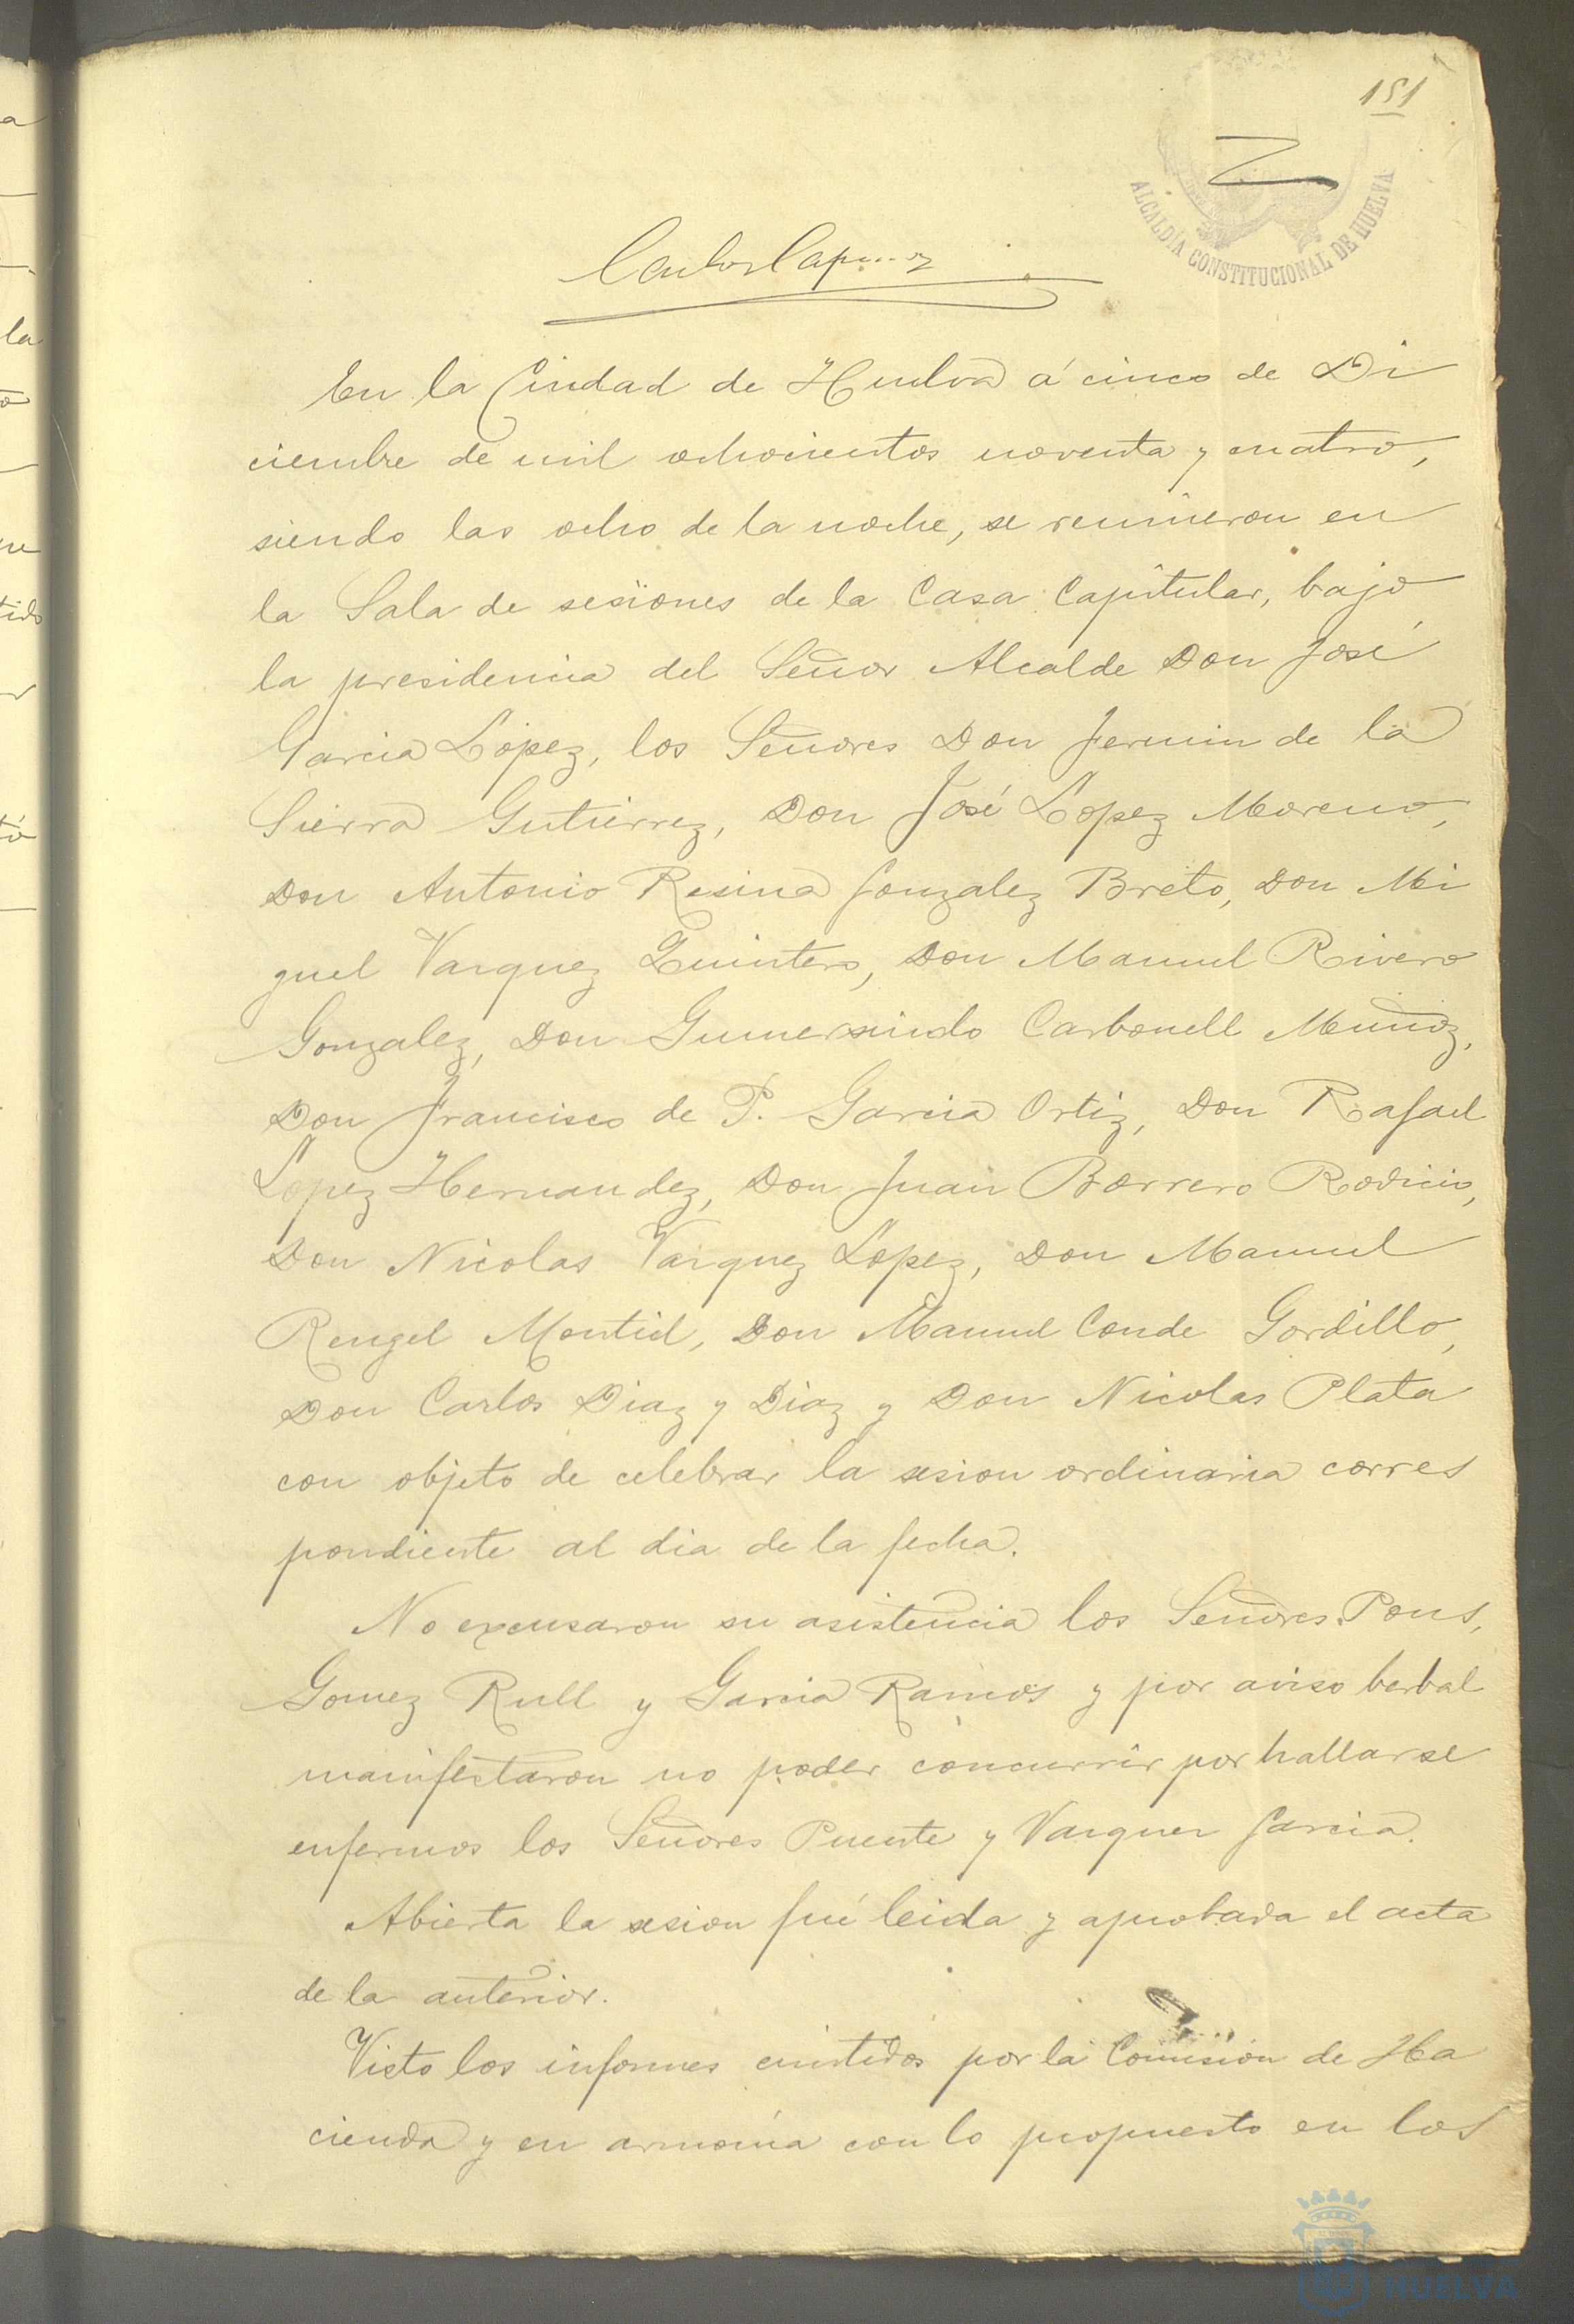 151
ALCALDÍA CONSTITUCIONAL DE HUELVA
Carlos
En la Ciudad de Huelva á cinco de Di
ciembre de mil ochocientos noventa y cuatro,
siendo las ocho de la noche, se reunieron en
la Sala de sesiones de la Casa Capitular, bajo
la presidencia del Señor Alcalde Don José
Garcia Lopez, los Señores Don Fermin de la
Sierra Gutierrez, Don José Lopez Moreno,
Don Antonio Resina Gonzalez Breto, Don Mi
guel Vazquez Quintero, Don Manuel Rivero
Gonzalez, Don Gumersindo Carbonell Muñoz,
Don Francisco de P. Garcia Ortiz, Don Rafael
Lopez Hernandez, Don Juan Borrero Rodicio,
Don Nicolas Vazquez Lopez, Don Manuel
Rengel Montiel, Don Manuel Conde Gordillo,
Don Carlos Diaz y Diaz y Don Nicolas Plata
con objeto de celebrar la sesion ordinaria corres
pondiente al dia de la fecha.
No excusaron su asistencia los Señores Pons,
Gomez Rull y Garcia Ramos y por aviso berbal
manifestaron no poder concurrir por hallarse
enfermos los Señores Puente y Vazquez Garcia.
Abierta la sesion fué leida y aprobada el acta
de la anterior.
Visto los informes emitidos por la Comision de Ha
cienda y en armonía con lo propuesto en los
HUELVA